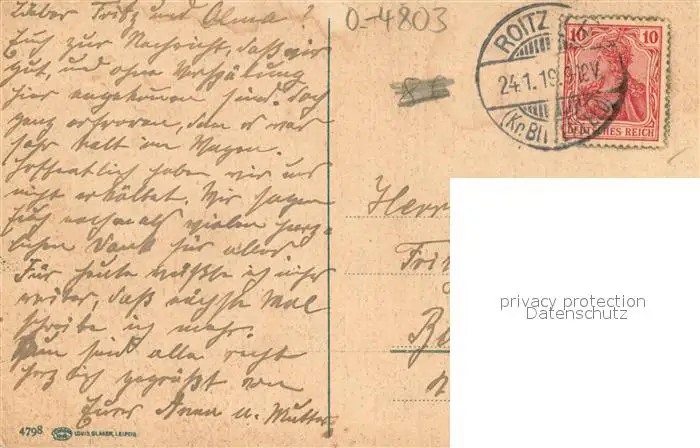 Lieber Fritz und Olma!
Euch zur Nachricht, daß wir
gut, und ohne Verspätung
hier angekommen sind. doch
ganz erfroren, den es war
sehr kalt im Wagen.
Hoffentlich haben wir uns
nicht erkältet. Wir sagen
Euch nochmals vielen herz-
lichen Dank für alles
Für heute wüßte ich nichts
weiter, daß nächste Mal
schreibe ich mehr.
Nun seid alle recht
herzlich gegrüßt von
Eurer Anna u. Mutter
4798 LOUIS GLASER, LEIPZIG.
0-4803
ROITZ
24.1.19. 9-10V.
(Kr. Bi
10 10
DEUTSCHES REICH
Herr
privacy protection
Datenschutz